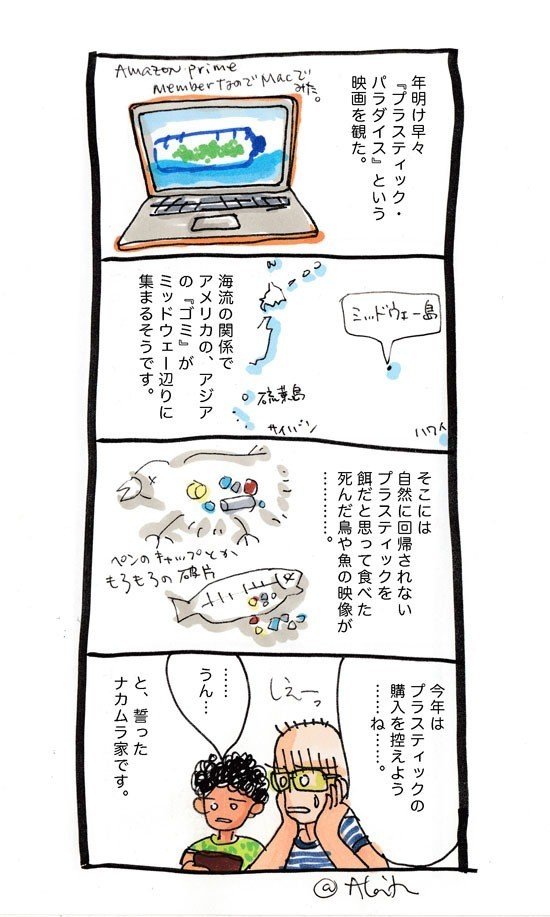 年明け早々
『プラスティック・
パラダイス』という
映画を観た。
Amazon prime
memberなのでMacで
みた。
ミッドウェー島
硫黄島
サイパン
ハワイ
海流の関係で
アメリカの、アジア
の『ゴミ』が
ミッドウェー辺りに
集まるそうです。
そこには
自然に回帰されない
プラスティックを
餌だと思って食べた
死んだ鳥や魚の映像が
…………。
ペンのキャップとか
もろもろの破片
今年は
プラスティックの
購入を控えよう
……ね……。
しえーっ
……
うん…
と、誓った
ナカムラ家です。